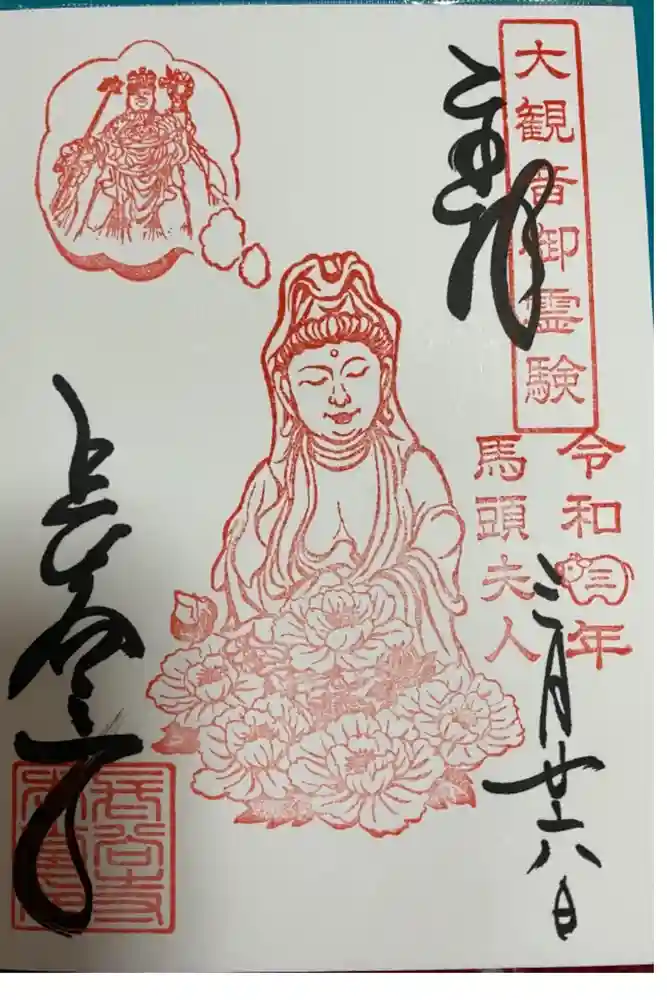 奉拝
大観音御霊験
令和三年
馬頭夫人
三月廿六日
長谷寺